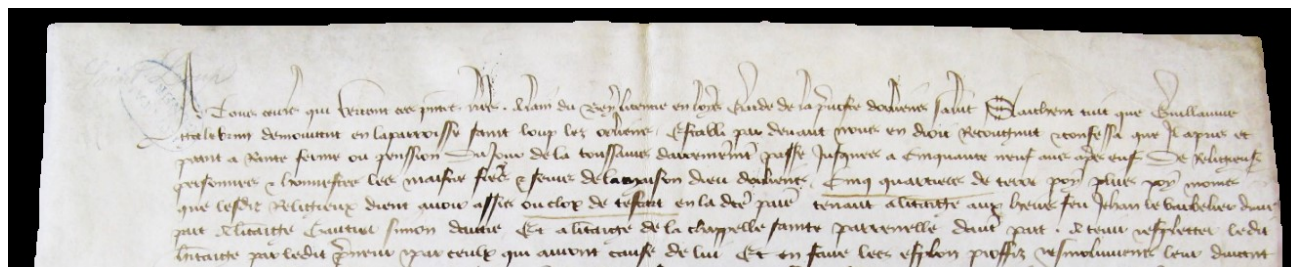 A Tous ceulx qui verront ces pntes lres Alain du Bey licencie en loys Garde de la prevoste dorliens salut Saichent tuit que Guillaume
demourant en la parroisse saint loup les orliens Establi par devant nous en droit recongnut & confessa que Il a pris et
prent a Rente ferme ou pension du Jour de la toussains derrenierement passe Jusques a Cinquante neuf ans apres ens De Religieuses
personnes & honnestes les maistre freres & seurs de la maison dieu dorliens Cinq quartiers de terre poy plus poy moins
que lesdis Religieux dient avoir assis ou clox de en la dce parr tenant a leritaige aux hoirs feu Jehan le barbelier dune
part a leritaige Gautier simon dautre Et a leritaige de la chappelle sainte parrenelle daut part A tenir & esploitter ledit
heritaige par ledit preneur & par ceulx qui auront cause de lui Et en faire les esploiz prouffiz & esmolumens leur durant